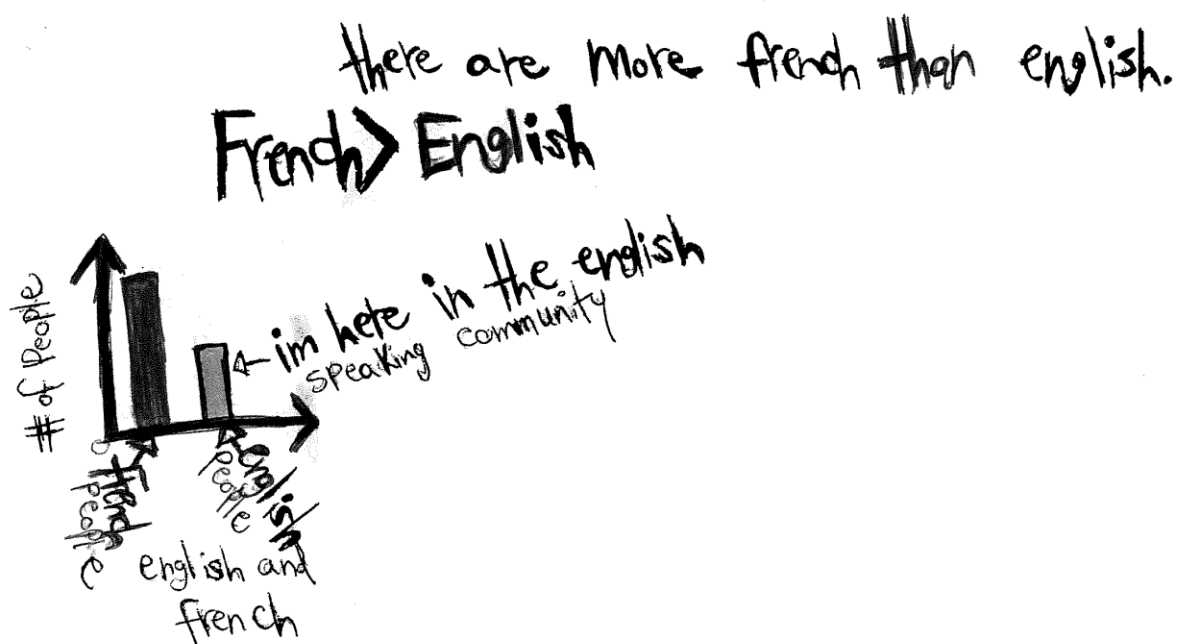 there are more french than english.
French > English
# of People
im here in the english
speaking community
0
french
people
english
people
english and
french